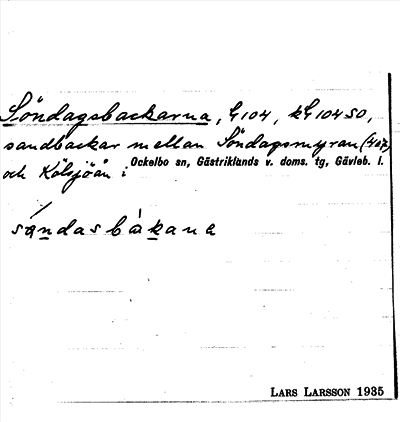 Söndagsbackarna, G 104, kG 104 SO,
sandbackar mellan Söndagsmyran (467)
och Kölsjöån i Ockelbo sn, Gästriklands v. doms. tg, Gävleb. l.
LARS LARSSON 1935